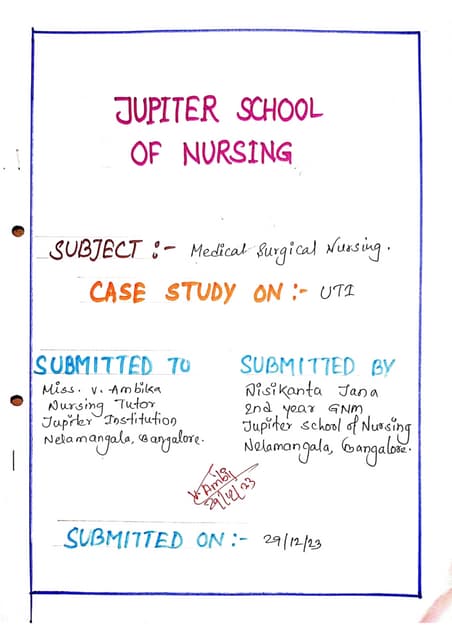 JUPITER SCHOOL
OF NURSING
SUBJECT :- Medical Surgical Nursing.
CASE STUDY ON :- UTI
SUBMITTED TO
Miss. V. Ambika
Nursing Tutor
Jupiter Institution
Nelamangala, Bangalore.
SUBMITTED BY
Nisikanta Jana
2nd year GNM
Jupiter School of Nursing
Nelamangala, Bangalore.
29/12/23
SUBMITTED ON :- 29/12/23